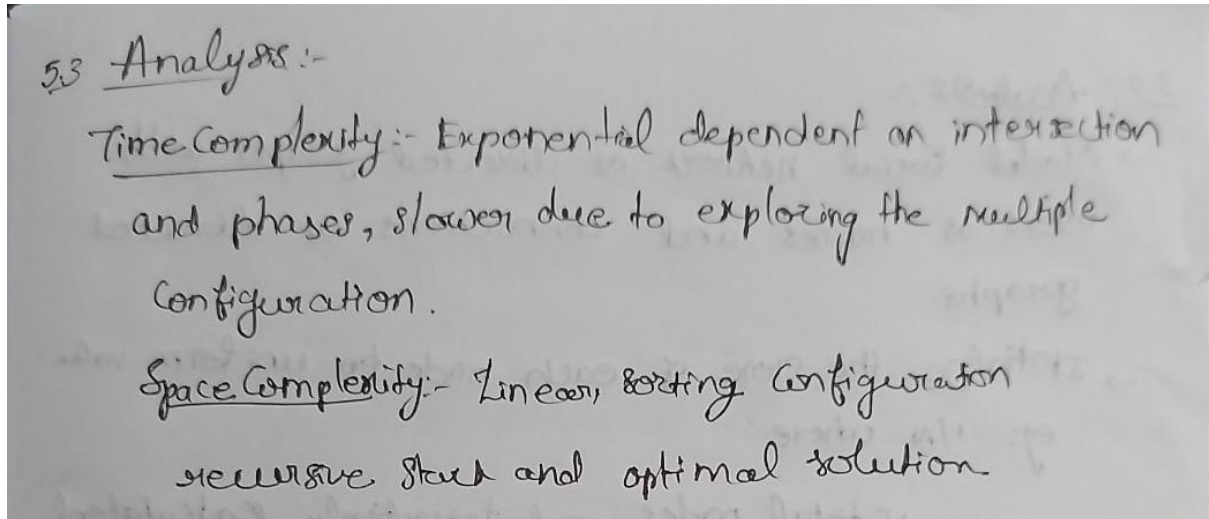 5.3 Analysis:-
Time Complexity:- Exponential dependent on intersection
and phases, slower due to exploring the multiple
Configuration.
Space Complexity:- Linear, sorting Configuration
recursive stack and optimal solution